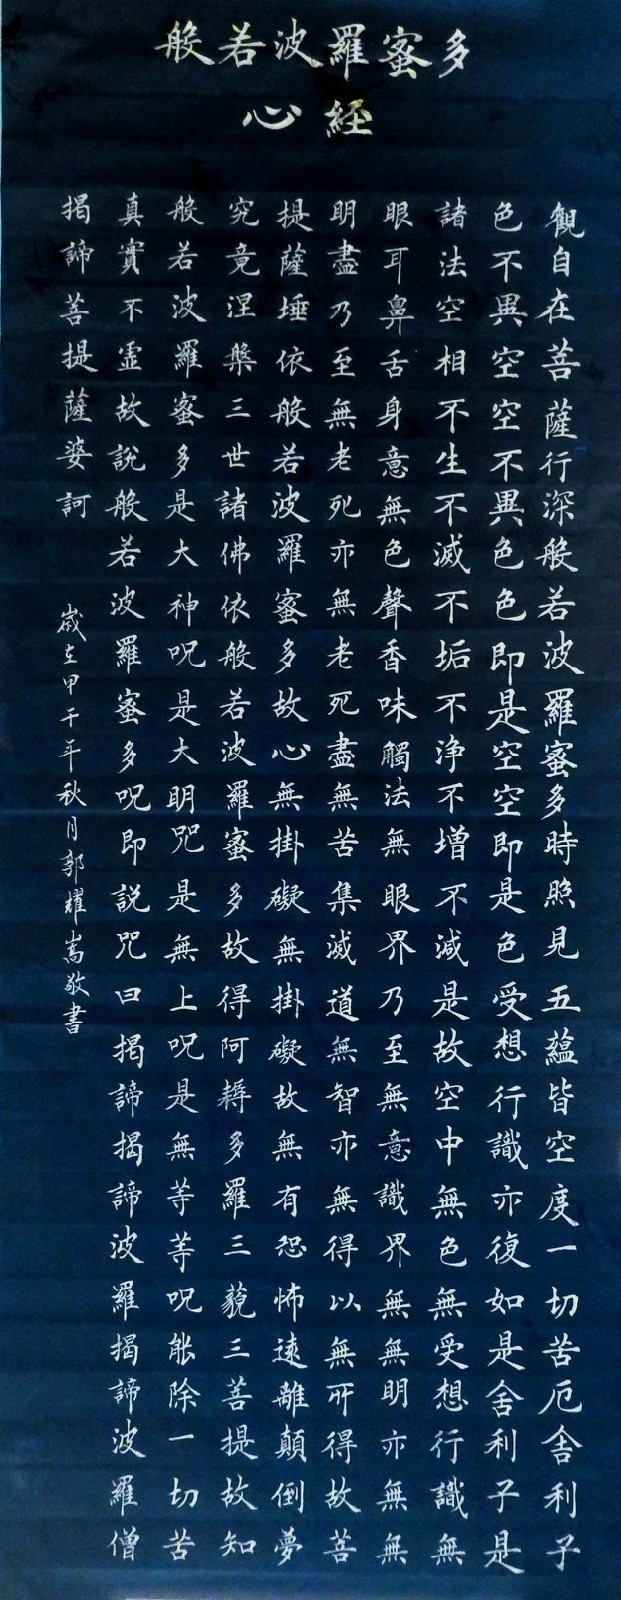 般若波羅蜜多
心經
觀自在菩薩行深般若波羅蜜多時照見五蘊皆空度一切苦厄舍利子
色不異空空不異色色即是空空即是色受想行識亦復如是舍利子是
諸法空相不生不滅不垢不淨不增不減是故空中無色無受想行識無
眼耳鼻舌身意無色聲香味觸法無眼界乃至無意識界無無明亦無無
明盡乃至無老死亦無老死盡無苦集滅道無智亦無得以無所得故菩
提薩埵依般若波羅蜜多故心無掛礙無掛礙故無有恐怖遠離顛倒夢
究竟涅槃三世諸佛依般若波羅蜜多故得阿耨多羅三藐三菩提故知
般若波羅蜜多是大神呪是大明咒是無上呪是無等等呪能除一切苦
真實不虛故說般若波羅蜜多呪即說咒曰揭諦揭諦波羅揭諦波羅僧
揭諦菩提薩婆訶
歲在甲午年秋月郭耀嵩敬書